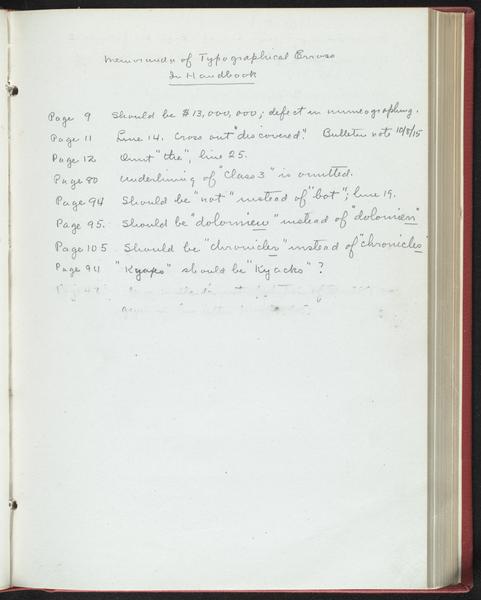 Memoranda of Typographical Errors
In Handbook
Page 9 Should be $13,000,000; defect in mimeographing.
Page 11 Line 14. Cross out "discovered". Bulletin note 10/8/15
Page 12 Omit "the", line 25.
Page 80 Underlining of "Class 3" is omitted.
Page 94 Should be "not" instead of "bot"; line 19.
Page 95. Should be "dolomieu" instead of "dolomien"
Page 105 Should be "chronicler" instead of "chronicles"
Page 94 "Kyaks" should be "Kyacks" ?
Page 47